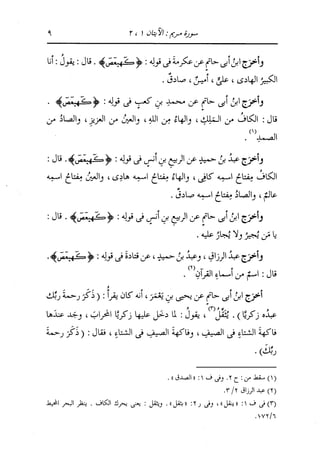 سورة مريم : الآيتان ١ ، ٢ ٩
وأخرج ابنُ أبى حاتمٍ عن عكرمةَ فى قولِه : ﴿كٓهيعٓصٓ﴾ . قال : يقولُ : أنا
الكبيرُ الهادى ، علىٌّ ، أمينٌ ، صادقٌ .
وأخرج ابنُ أبى حاتمٍ عن محمدِ بنِ كعبٍ فى قولِه : ﴿كٓهيعٓصٓ﴾ .
قال : الكافُ من المَلِكِ ، والهاءُ من اللهِ ، والعينُ من العزيزِ ، والصادُ من
الصمدِ (١) .
وأخرج عبدُ بنُ حميدٍ عن الربيعِ بنِ أنسٍ فى قولِه : ﴿كٓهيعٓصٓ﴾ . قال :
الكافُ مِفتاحُ اسمِه كافى ، والهاءُ مِفتاحُ اسمِه هادى ، والعينُ مِفتاحُ اسمِه
عالمٌ ، والصادُ مِفتاحُ اسمِه صادقٌ .
وأخرج ابنُ أبى حاتمٍ عن الربيعِ بنِ أنسٍ فى قولِه : ﴿كٓهيعٓصٓ﴾ . قال :
يا مَن يُجيرُ ولا يُجارُ عليه .
وأخرج عبدُ الرزاقِ ، وعبدُ بنُ حميدٍ ، عن قتادةَ فى قولِه : ﴿كٓهيعٓصٓ﴾ .
قال : اسمٌ من أسماءِ القرآنِ (٢) .
أخرج ابنُ أبى حاتمٍ عن يحيى بنِ يَعْمَرَ ، أنه كان يقرأُ : (ذَكَّرَ رحمةَ ربِّك
عبدَه زكريَّا) . يُثَقِّلُ (٣) ، يقولُ : لما دخل عليها زكريَّا المحرابَ ، وجَد عندَها
فاكهةَ الشتاءِ فى الصيفِ ، وفاكهةَ الصيفِ فى الشتاءِ ، فقال : (ذَكَّرَ رحمةَ
ربِّك) .
(١) سقط من : ح ٢ . وفى ف ١ : « الصدق » .
(٢) عبد الرزاق ٢/ ٣ .
(٣) فى ف ١ : « ينقل » ، وفى ر ٢ : « يثقل » . ويثقل : يعنى بحرك الكاف . ينظر البحر المحيط
٦/ ١٧٢ .